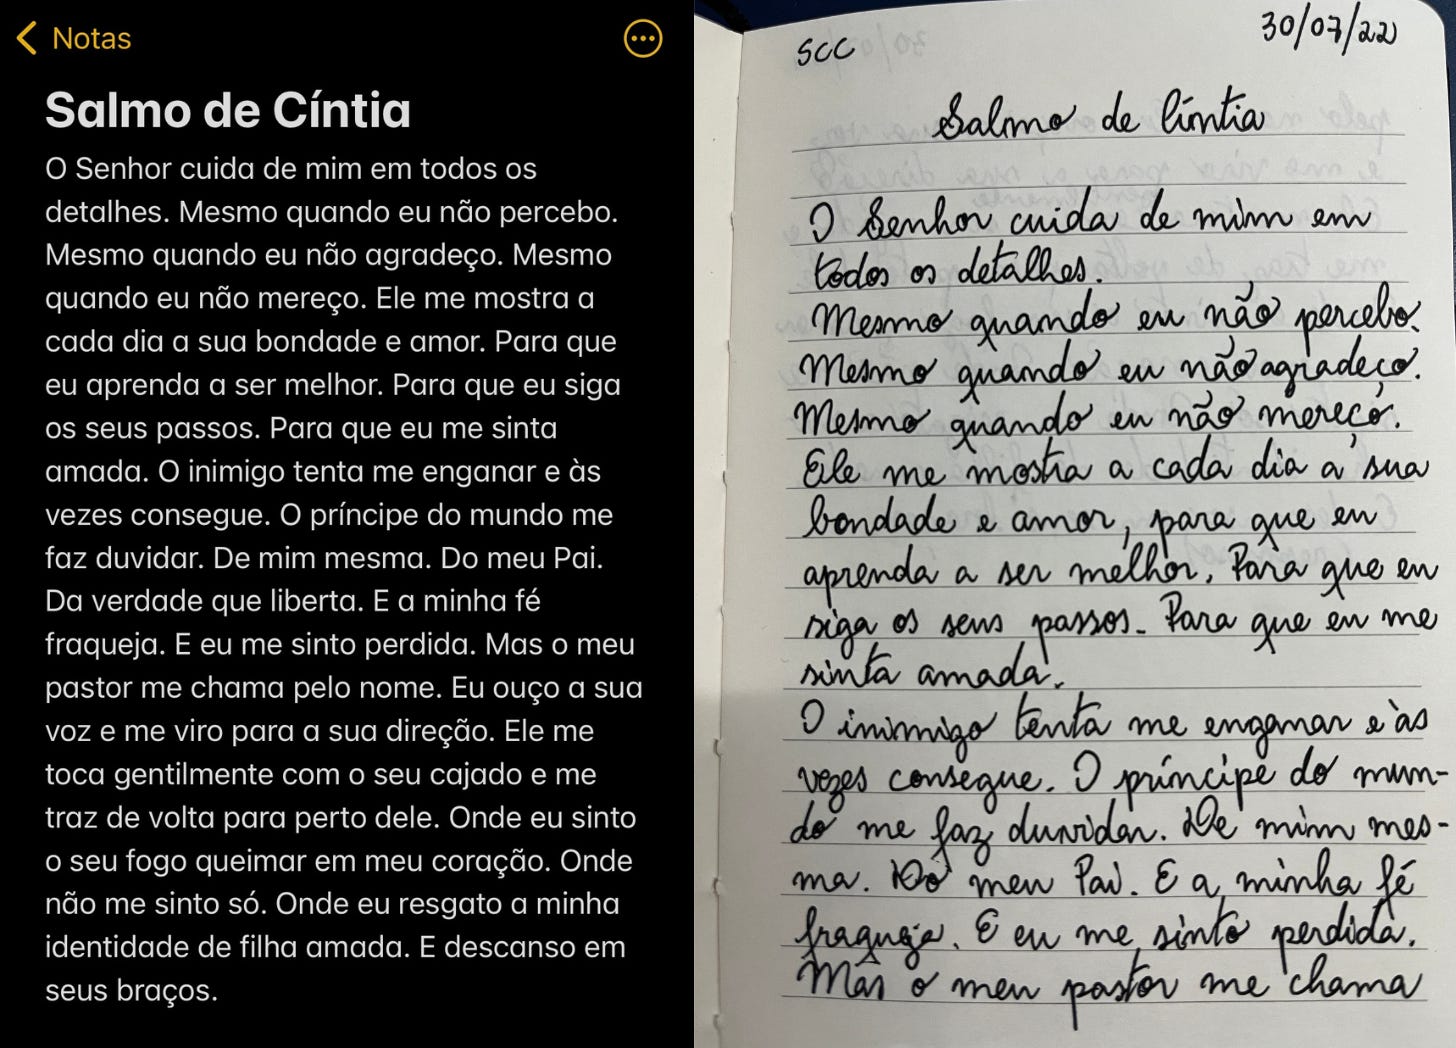 Notas
Salmo de Cíntia
O Senhor cuida de mim em todos os
detalhes. Mesmo quando eu não percebo.
Mesmo quando eu não agradeço. Mesmo
quando eu não mereço. Ele me mostra a
cada dia a sua bondade e amor. Para que
eu aprenda a ser melhor. Para que eu siga
os seus passos. Para que eu me sinta
amada. O inimigo tenta me enganar e às
vezes consegue. O príncipe do mundo me
faz duvidar. De mim mesma. Do meu Pai.
Da verdade que liberta. E a minha fé
fraqueja. E eu me sinto perdida. Mas o meu
pastor me chama pelo nome. Eu ouço a sua
voz e me viro para a sua direção. Ele me
toca gentilmente com o seu cajado e me
traz de volta para perto dele. Onde eu sinto
o seu fogo queimar em meu coração. Onde
não me sinto só. Onde eu resgato a minha
identidade de filha amada. E descanso em
seus braços.
SCC
30/07/22
Salmo de Cíntia
O Senhor cuida de mim em
todos os detalhes.
Mesmo quando eu não percebo.
Mesmo quando eu não agradeço.
Mesmo quando eu não mereço.
Ele me mostra a cada dia a sua
bondade e amor, para que eu
aprenda a ser melhor. Para que eu
siga os seus passos. Para que eu me
sinta amada.
O inimigo tenta me enganar e às
vezes consegue. O príncipe do mun-
do me faz duvidar. De mim mes-
ma. Do meu Pai. E a minha fé
fraqueja. E eu me sinto perdida.
Mas o meu pastor me chama